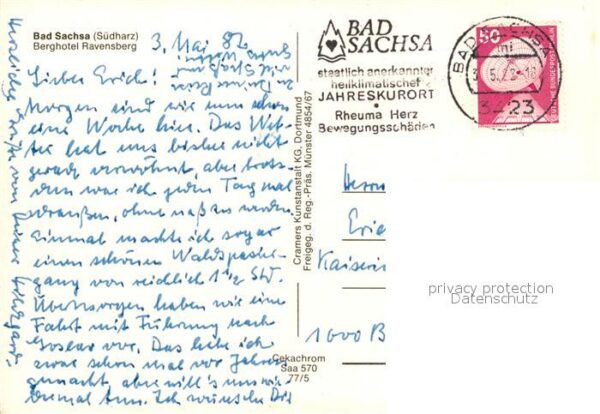 Bad Sachsa (Südharz)
Berghotel Ravensberg
3. Mai 82
Lieber Erich!
Morgen sind wir nun schon
eine Woche hier. Das Wet-
ter hat uns bisher nicht
gerade verwöhnt, aber trotz-
dem war ich jeden Tag mal
draußen, ohne naß zu werden.
Einmal machte ich sogar
einen schönen Waldspazier-
gang von reichlich 1½ Std.
Übermorgen haben wir eine
Fahrt mit Führung nach
Goslar vor. Das habe ich
zwar schon mal vor Jahren
gemacht, aber will's
Ich wünsche Dir
viel Spaß
Herzliche Grüße von Deiner Hildegard
Cramers Kunstanstalt KG, Dortmund
Freigeg. d. Reg.-Präs. Münster 4854/67
Cekachrom
Saa 570
77/5
BAD
SACHSA
staatlich anerkannter
heilklimatischer
JAHRESKURORT
Rheuma Herz
Bewegungsschäden
BAD SACHSA
3423
50
DEUTSCHE BUNDESPOST BERLIN
Herrn
Eric
Kaiserin
1000 B
privacy protection
Datenschutz